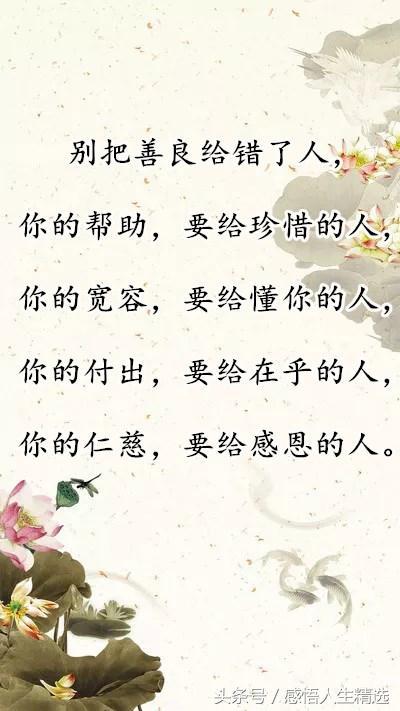 别把善良给错了人，
你的帮助，要给珍惜的人，
你的宽容，要给懂你的人，
你的付出，要给在乎的人，
你的仁慈，要给感恩的人。
头条号 / 感悟人生精选